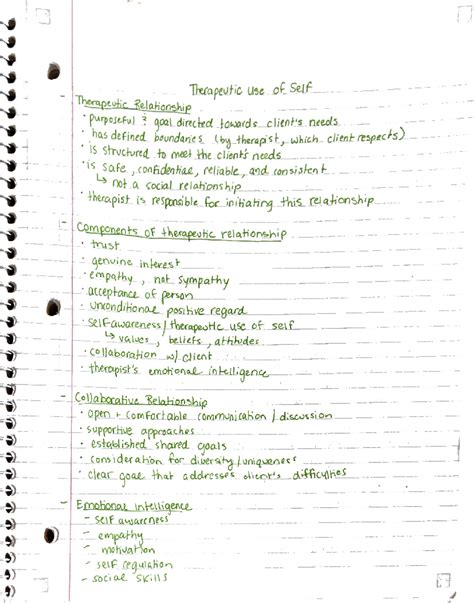 Therapeutic Use of Self
- Therapeutic Relationship
· purposeful & goal directed towards client's needs
· has defined boundaries (by therapist, which client respects)
· is structured to meet the client's needs
· is safe, confidential, reliable, and consistent
↳ not a social relationship
· therapist is responsible for initiating this relationship
- Components of therapeutic relationship
· trust
· genuine interest
· empathy, not sympathy
· acceptance of person
· unconditional positive regard
· self awareness/therapeutic use of self
↳ values, beliefs, attitudes
· collaboration w/ client
· therapist's emotional intelligence
- Collaborative Relationship
· open + comfortable communication / discussion
· supportive approaches
· established shared goals
· consideration for diversity/uniqueness
· clear goal that addresses client's difficulties
- Emotional Intelligence
- self awareness
- empathy
- motivation
- self regulation
- social skills